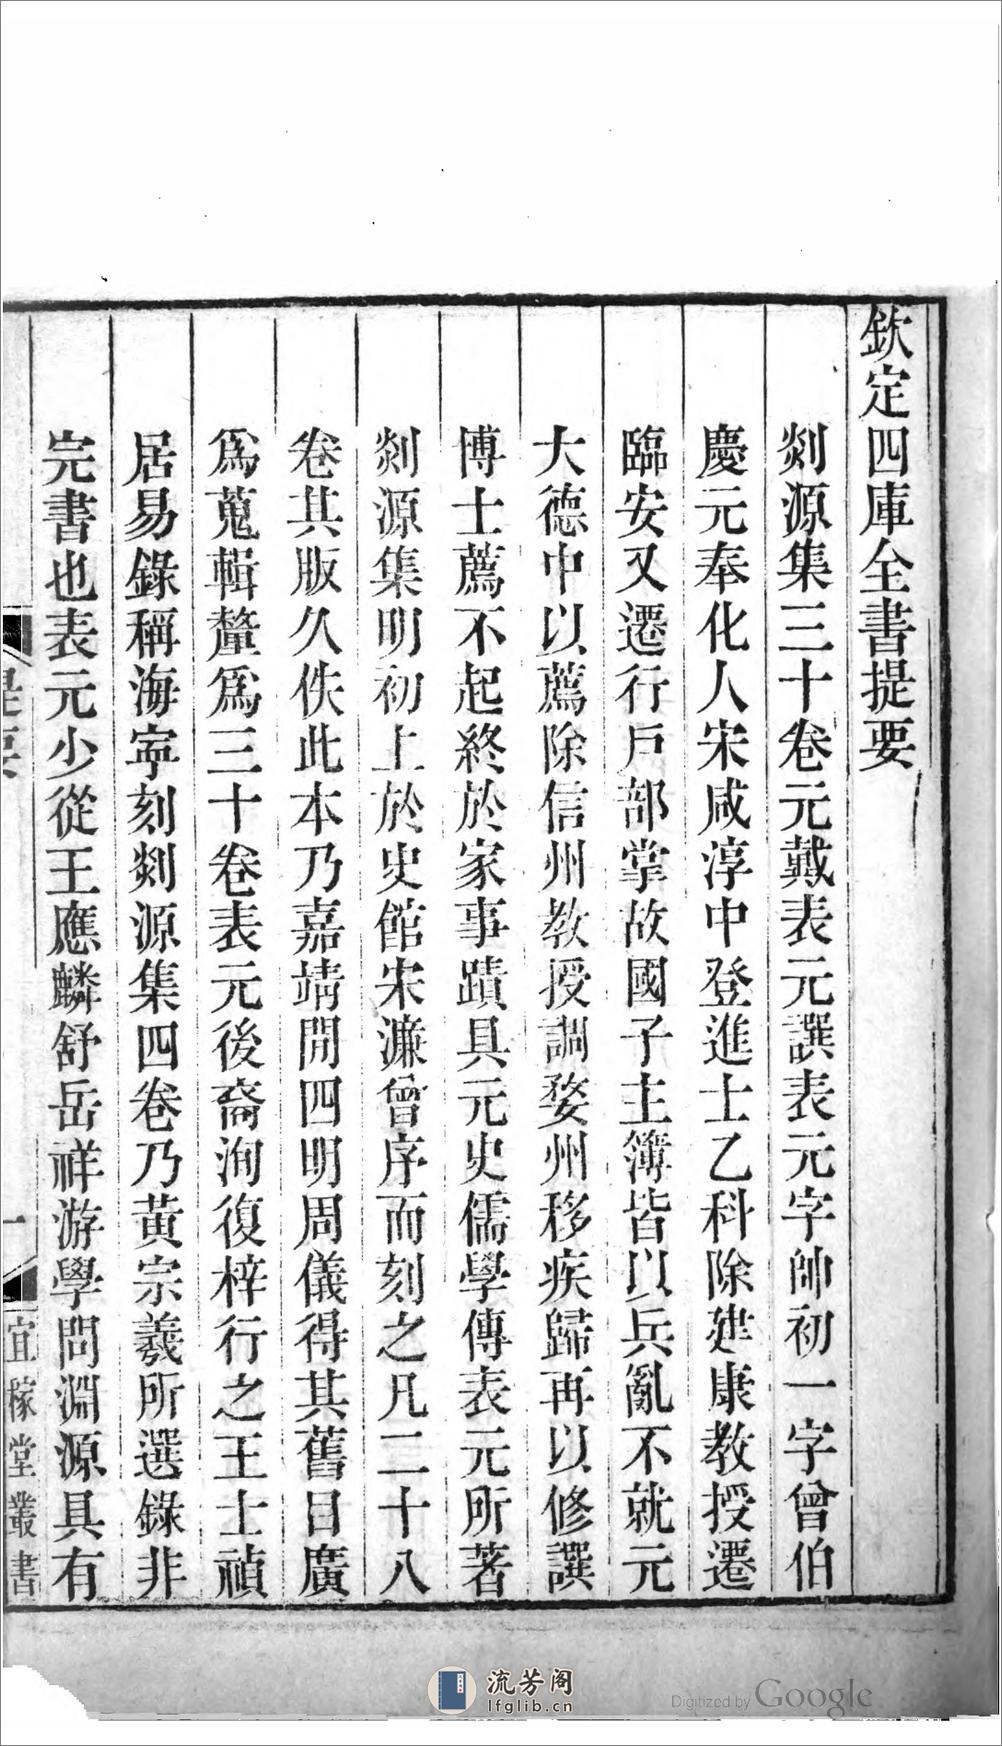 欽定四庫全書提要
剡源集三十卷元戴表元譔表元字帥初一字曾伯
慶元奉化人宋咸淳中登進士乙科除建康教授遷
臨安又遷行戶部掌故國子主簿皆以兵亂不就元
大德中以薦除信州教授調婺州移疾歸再以修譔
博士薦不起終於家事蹟具元史儒學傳表元所著
剡源集明初上於史館宋濂曾序而刻之凡二十八
卷其版久佚此本乃嘉靖閒四明周儀得其舊目廣
爲蒐輯釐爲三十卷表元後裔洵復梓行之王士禎
居易錄稱海寧刻剡源集四卷乃黃宗羲所選錄非
完書也表元少從王應麟舒岳祥游學問淵源具有
提要
一
宜稼堂叢書
流芳阁
lfglib.cn
Digitized by Google